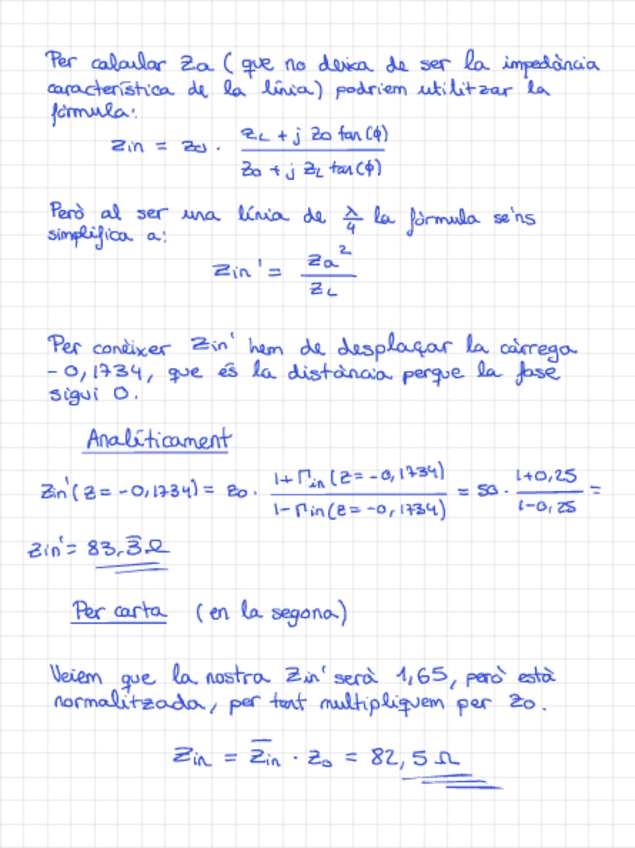 Per calcular Za (que no deixa de ser la impedància
característica de la línia) podriem utilitzar la
fórmula:
Zin = Zo · (ZL + j Zo tan(φ)) / (Zo + j ZL tan(φ))
Però al ser una línia de λ/4 la fórmula se'ns
simplifica a:
Zin' = Za² / ZL
Per conèixer Zin' hem de desplaçar la càrrega
-0,1734, que és la distància perque la fase
sigui 0.
Analíticament
Zin'(z=-0,1734) = Zo · (1+Γin(z=-0,1734)) / (1-Γin(z=-0,1734)) = 50 · (1+0,25) / (1-0,25) =
Zin' = 83,3̅ Ω
Per carta (en la segona)
Veiem que la nostra Zin' serà 1,65, però està
normalitzada, per tant multipliquem per Zo.
Zin = Z̅in · Zo = 82,5 Ω